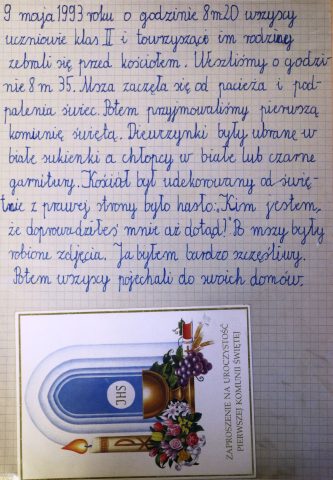 9 maja 1993 roku o godzinie 8 m 20 wszyscy
uczniowie klas II i towarzyszące im rodziny
zebrali się przed kościołem. Weszliśmy o godzi-
nie 8 m 35. Msza zaczęła się od pacieża i pod-
palenia świec. Potem przyjmowaliśmy pierwszą
komunię świętą. Dziewczynki były ubrane w
białe sukienki a chłopcy w białe lub czarne
garnitury. Kościoł był udekorowany od świę-
tnie z prawej strony było hasło: „Kim jestem,
że doprowadziłeś mnie aż dotąd!" Po mszy były
robione zdjęcia. Ja byłem bardzo szczęśliwy.
Potem wszyscy pojechali do swoich domów.
JHS
ZAPROSZENIE NA UROCZYSTOŚĆ
PIERWSZEJ KOMUNII ŚWIĘTEJ